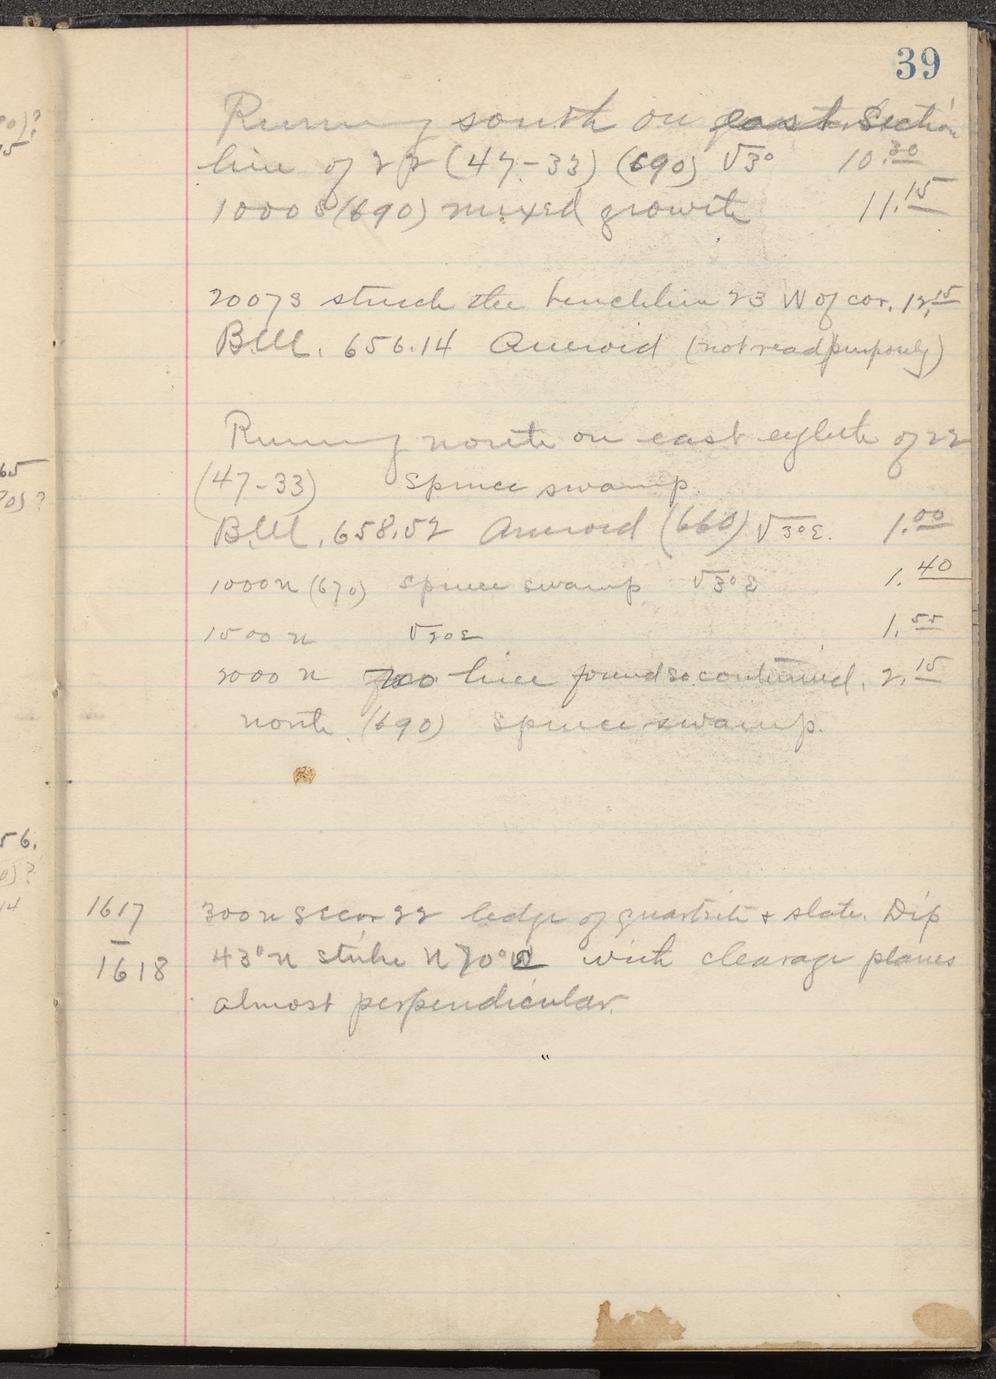 39
Running south on east Section
line of 22 (47-33) (690) V3° 10.30
1000 S (690) mixed growth 11.15
2007 S struck the benchline 23 W of cor. 12.15
B.M. 656.14 Aneroid (not read purposely)
Running north on east eighth of 22
(47-33) Spruce swamp.
B.M. 658.52 Aneroid (660) V3°E. 1.00
1000 N (670) Spruce swamp V3°E 1.40
1500 N V2°E 1.55
2000 N line found so continued. 2.15
north (690) Spruce swamp.
1617 300 N SE cor 22 ledge of quartzite & slate. Dip
1618 43° N strike N 70° with cleavage planes
almost perpendicular.